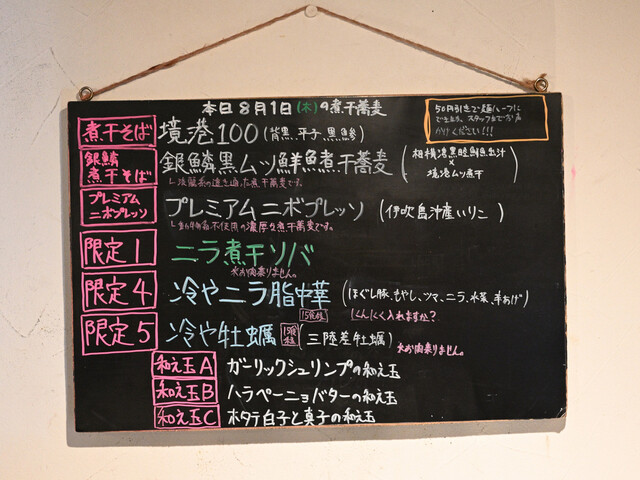 本日8月1日(木)の煮干蕎麦
50円引きで麺ハーフに
できます。スタッフまでお声
かけください!!!
煮干そば 境港100 (背黒、平子、黒鯵)
銀鱗煮干そば 銀鱗黒ムツ鮮魚煮干蕎麦 (相模湾黒睦鮮魚出汁×境港ムツ煮干)
な煮干蕎麦です。
プレミアムニボプレッソ プレミアムニボプレッソ (伊吹島沖産いりこ)
└動物不使用の濃厚な煮干蕎麦です。
限定1 ニラ煮干ソバ
※お肉乗りません。
限定4 冷やニラ脂中華 (ほぐし豚、もやし、ツマ、ニラ、水菜、羊あげ)
15食程 にんにく入れますか?
限定5 冷や牡蠣 15食程 (三陸産牡蠣) ※お肉乗りません。
和え玉A ガーリックシュリンプの和え玉
和え玉B ハラペーニョバターの和え玉
和え玉C ホタテ白子と真子の和え玉